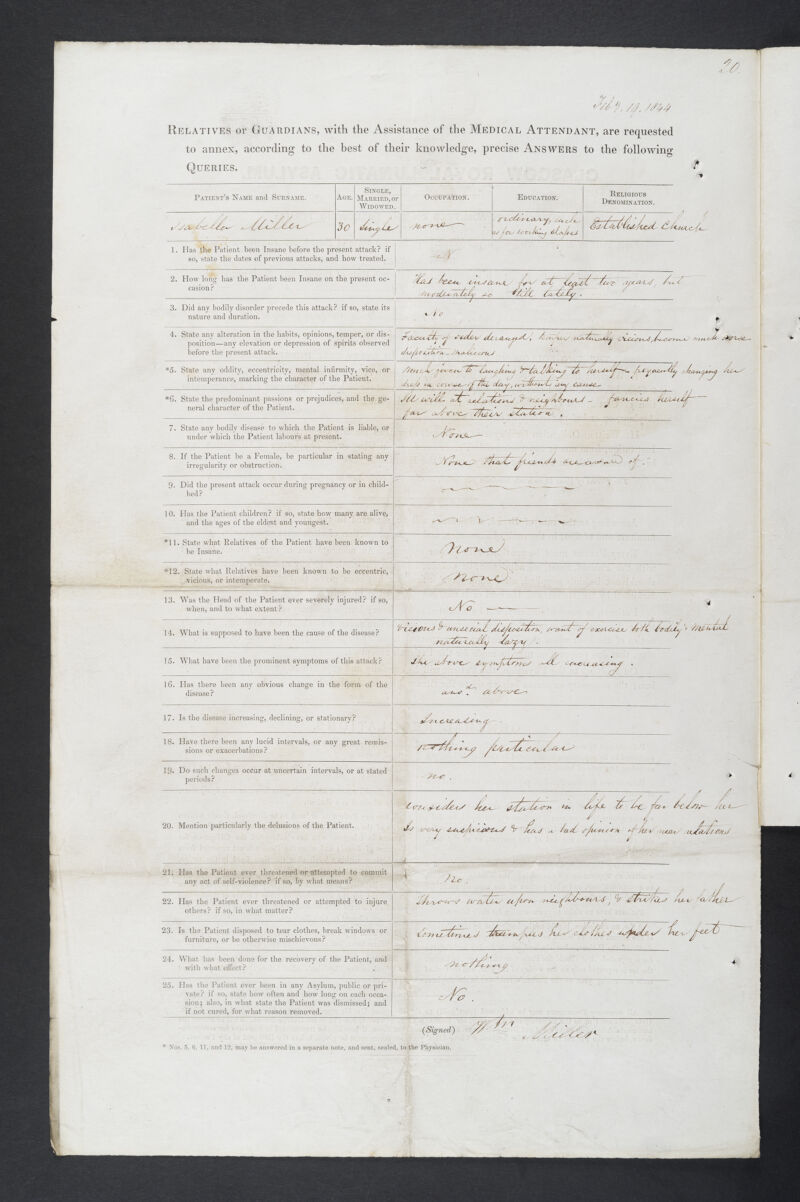 20.
Feby. 19. 1844
RELATIVES or GUARDIANS, with the Assistance of the MEDICAL ATTENDANT, are requested
to annex, according to the best of their knowledge, precise ANSWERS to the following
QUERIES.
PATIENT'S NAME and SURNAME. AGE. SINGLE, MARRIED, or WIDOWED. OCCUPATION. EDUCATION. RELIGIOUS DENOMINATION.
Isabella Miller 30 Single none ordinary, such as for working classes Established Church
1. Has the Patient been Insane before the present attack? if
so, state the dates of previous attacks, and how treated.
2. How long has the Patient been Insane on the present oc-
casion?
Has been insane for at least two years, but
moderately so till lately.
3. Did any bodily disorder precede this attack? if so, state its
nature and duration.
No
4. State any alteration in the habits, opinions, temper, or dis-
position—any elevation or depression of spirits observed
before the present attack.
Faculty of order deranged, temper naturally vicious, become much worse
disposition malicious
*5. State any oddity, eccentricity, mental infirmity, vice, or
intemperance, marking the character of the Patient.
Much given to laughing & talking to herself — frequently changing her
dress in course of the day, without any cause
*6. State the predominant passions or prejudices, and the ge-
neral character of the Patient.
Ill will at relations & neighbours — fancies herself
far above their station.
7. State any bodily disease to which the Patient is liable, or
under which the Patient labours at present.
None
8. If the Patient be a Female, be particular in stating any
irregularity or obstruction.
None that friends are aware of.
9. Did the present attack occur during pregnancy or in child-
bed?
10. Has the Patient children? if so, state how many are alive,
and the ages of the eldest and youngest.
*11. State what Relatives of the Patient have been known to
be Insane.
None
*12. State what Relatives have been known to be eccentric,
vicious, or intemperate.
None
13. Was the Head of the Patient ever severely injured? if so,
when, and to what extent?
No —
14. What is supposed to have been the cause of the disease?
Vicious & unsocial disposition, want of exercise both bodily & mental
naturally lazy.
15. What have been the prominent symptoms of this attack?
The above symptoms all increasing.
16. Has there been any obvious change in the form of the
disease?
above
17. Is the disease increasing, declining, or stationary?
Increasing
18. Have there been any lucid intervals, or any great remis-
sions or exacerbations?
nothing particular
19. Do such changes occur at uncertain intervals, or at stated
periods?
no.
20. Mention particularly the delusions of the Patient.
Considers her station in life to be far below her
Is very suspicious & has a bad opinion of her near relations
21. Has the Patient ever threatened or attempted to commit
any act of self-violence? if so, by what means?
no.
22. Has the Patient ever threatened or attempted to injure
others? if so, in what matter?
Throws water upon neighbours, & strikes her father
23. Is the Patient disposed to tear clothes, break windows or
furniture, or be otherwise mischievous?
Sometimes trampes her clothes under her feet
24. What has been done for the recovery of the Patient, and
with what effect?
nothing
25. Has the Patient ever been in any Asylum, public or pri-
vate? if so, state how often and how long on each occa-
sion; also, in what state the Patient was dismissed; and
if not cured, for what reason removed.
No.
(Signed) Wm Miller
* Nos. 5, 6, 11, and 12, may be answered in a separate note, and sent, sealed, to the Physician.